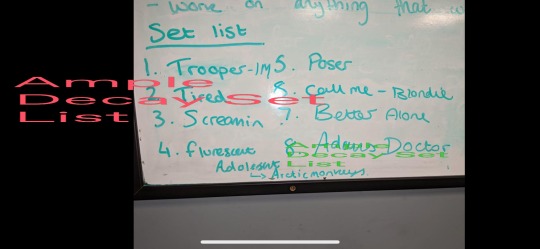 - Work on anything that
Set list
1. Trooper-IM
2 Tired
3. Screamin
4. flurescent
Adolescent
↳ Arctic monkeys
5. Poser
6. Call me - Blondie
7. Better Alone
8. Adams Doctor
Ample
Decay Set
List
Ample
Decay Set
List